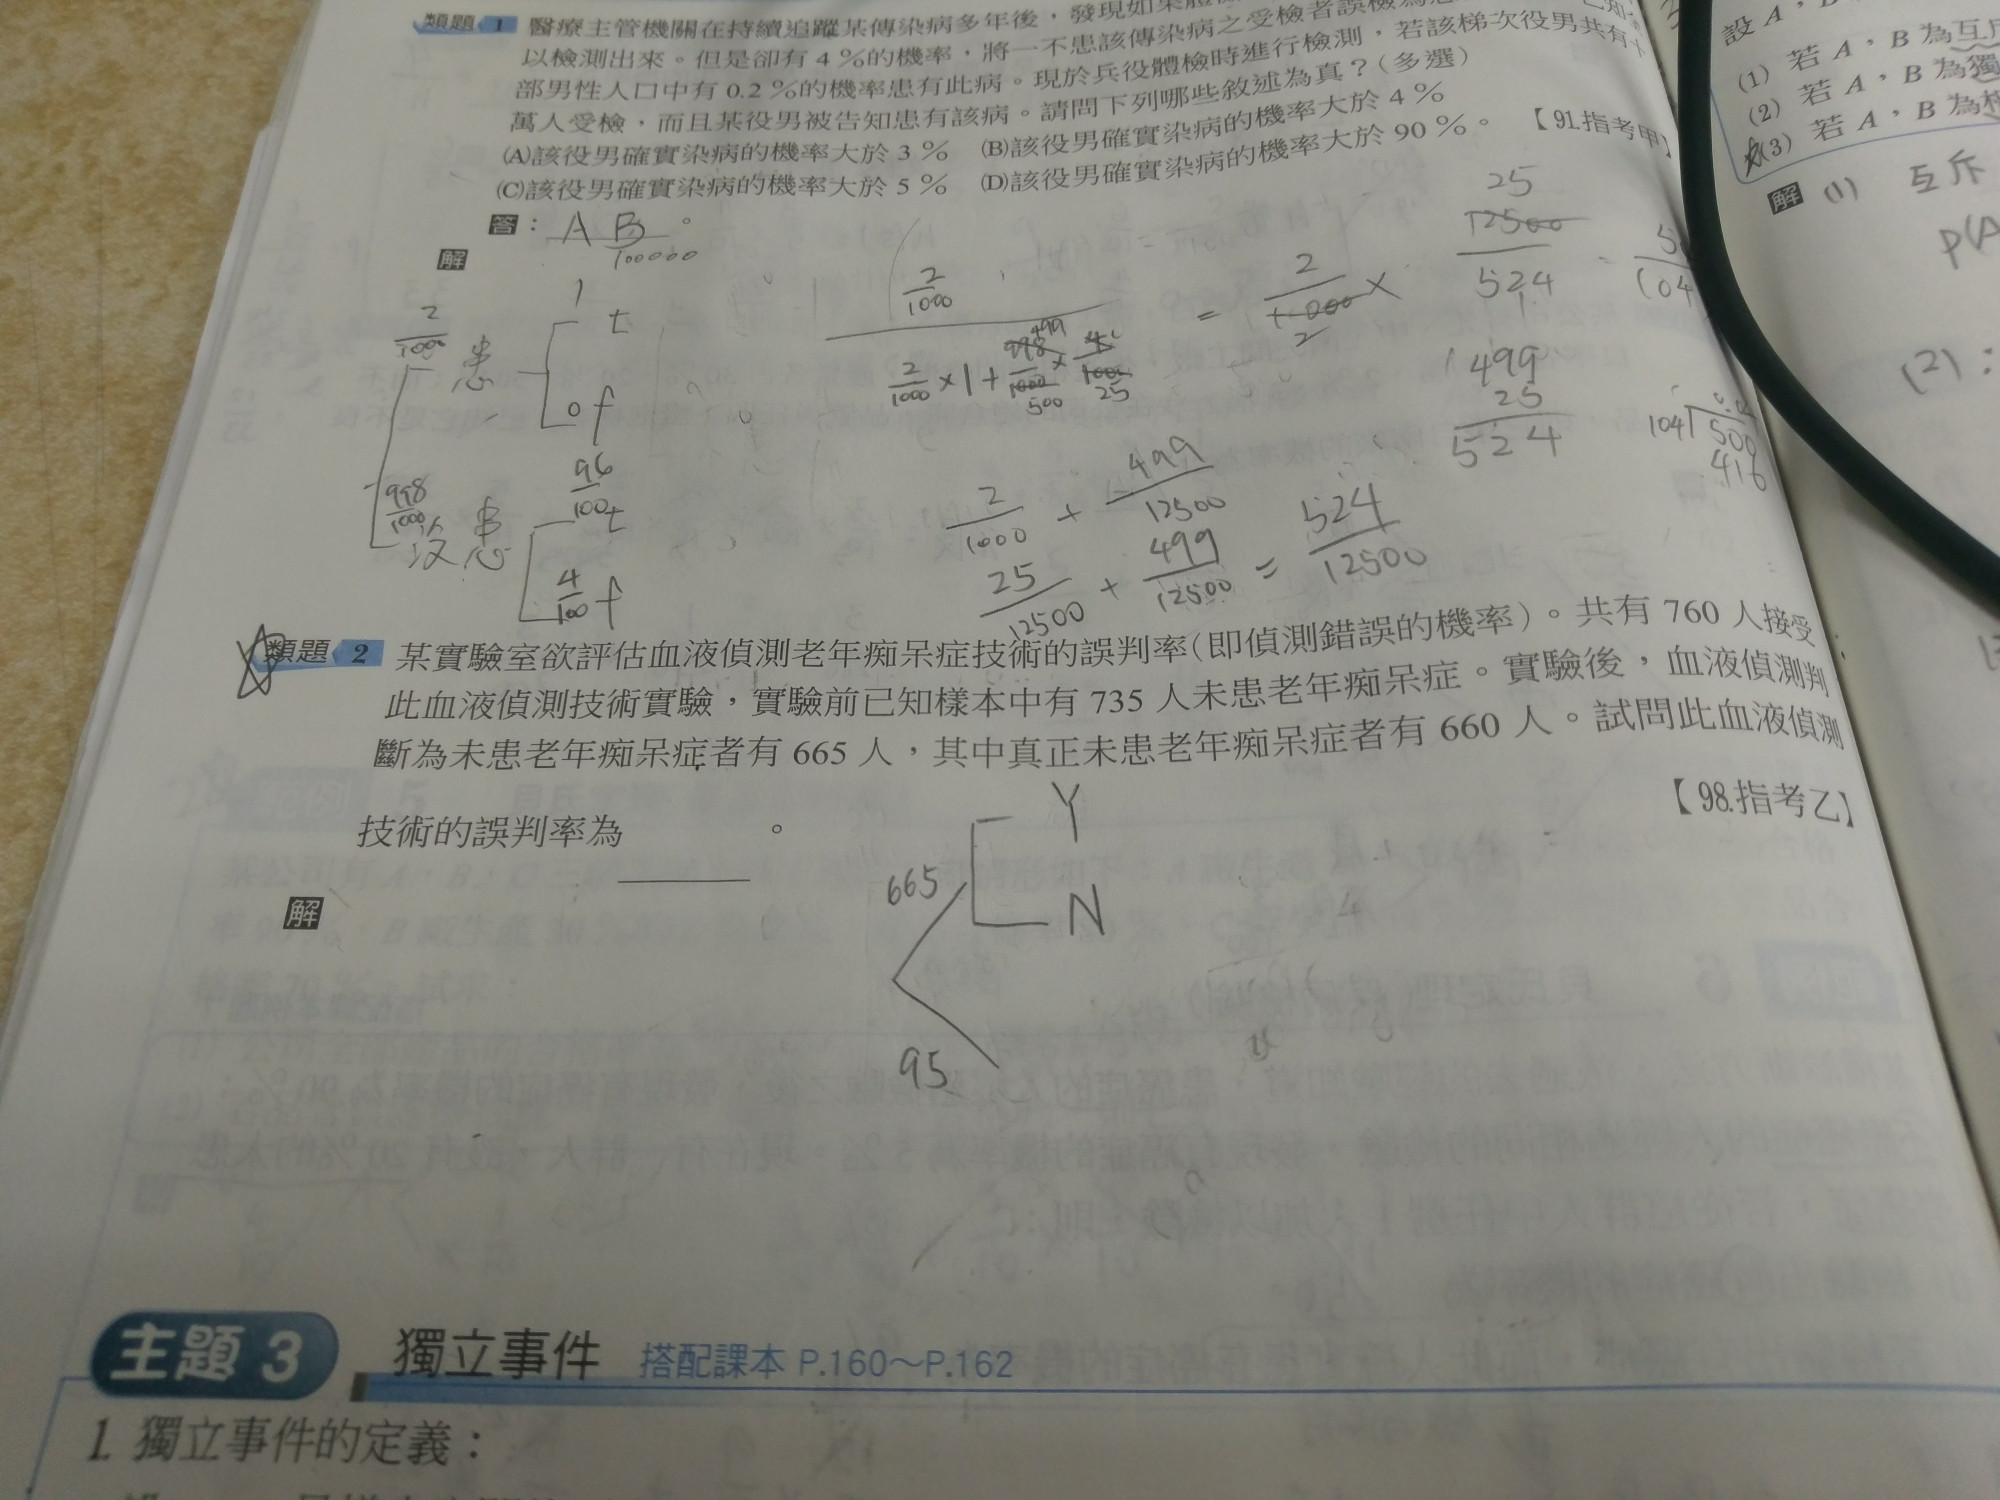 類題 1 醫療主管機關在持續追蹤某傳染病多年後，發現如果
以檢測出來。但是卻有 4 %的機率，將一不患該傳染病之受檢者誤檢為
部男性人口中有 0.2 %的機率患有此病。現於兵役體檢時進行檢測，若該梯次役男共有十
萬人受檢，而且某役男被告知患有該病。請問下列哪些敘述為真？(多選)
(A)該役男確實染病的機率大於 3 % (B)該役男確實染病的機率大於 4 %
(C)該役男確實染病的機率大於 5 % (D)該役男確實染病的機率大於 90 %。 【91.指考甲】
答：A B。
100000
解
2/1000 患
1 t
0 f
998/1000 沒患
96/100 t
4/100 f
2/1000
2/1000 × 1 + 998/1000 499/500 × 4/100 1/25
= 2/1000 2 × 12500/524 25
2/1000 + 499/12500
25/12500 + 499/12500 = 524/12500
499
25
524
104 500
416
類題 2 某實驗室欲評估血液偵測老年痴呆症技術的誤判率(即偵測錯誤的機率)。共有 760 人接受
此血液偵測技術實驗，實驗前已知樣本中有 735 人未患老年痴呆症。實驗後，血液偵測判
斷為未患老年痴呆症者有 665 人，其中真正未患老年痴呆症者有 660 人。試問此血液偵測
技術的誤判率為 。 【98.指考乙】
解
Y
665
N
95
主題 3 獨立事件 搭配課本 P.160～P.162
1. 獨立事件的定義：
設 A，
(1) 若 A，B 為互斥
(2) 若 A，B 為獨
(3) 若 A，B 為
解 (1) 互斥
P(A
(2)：